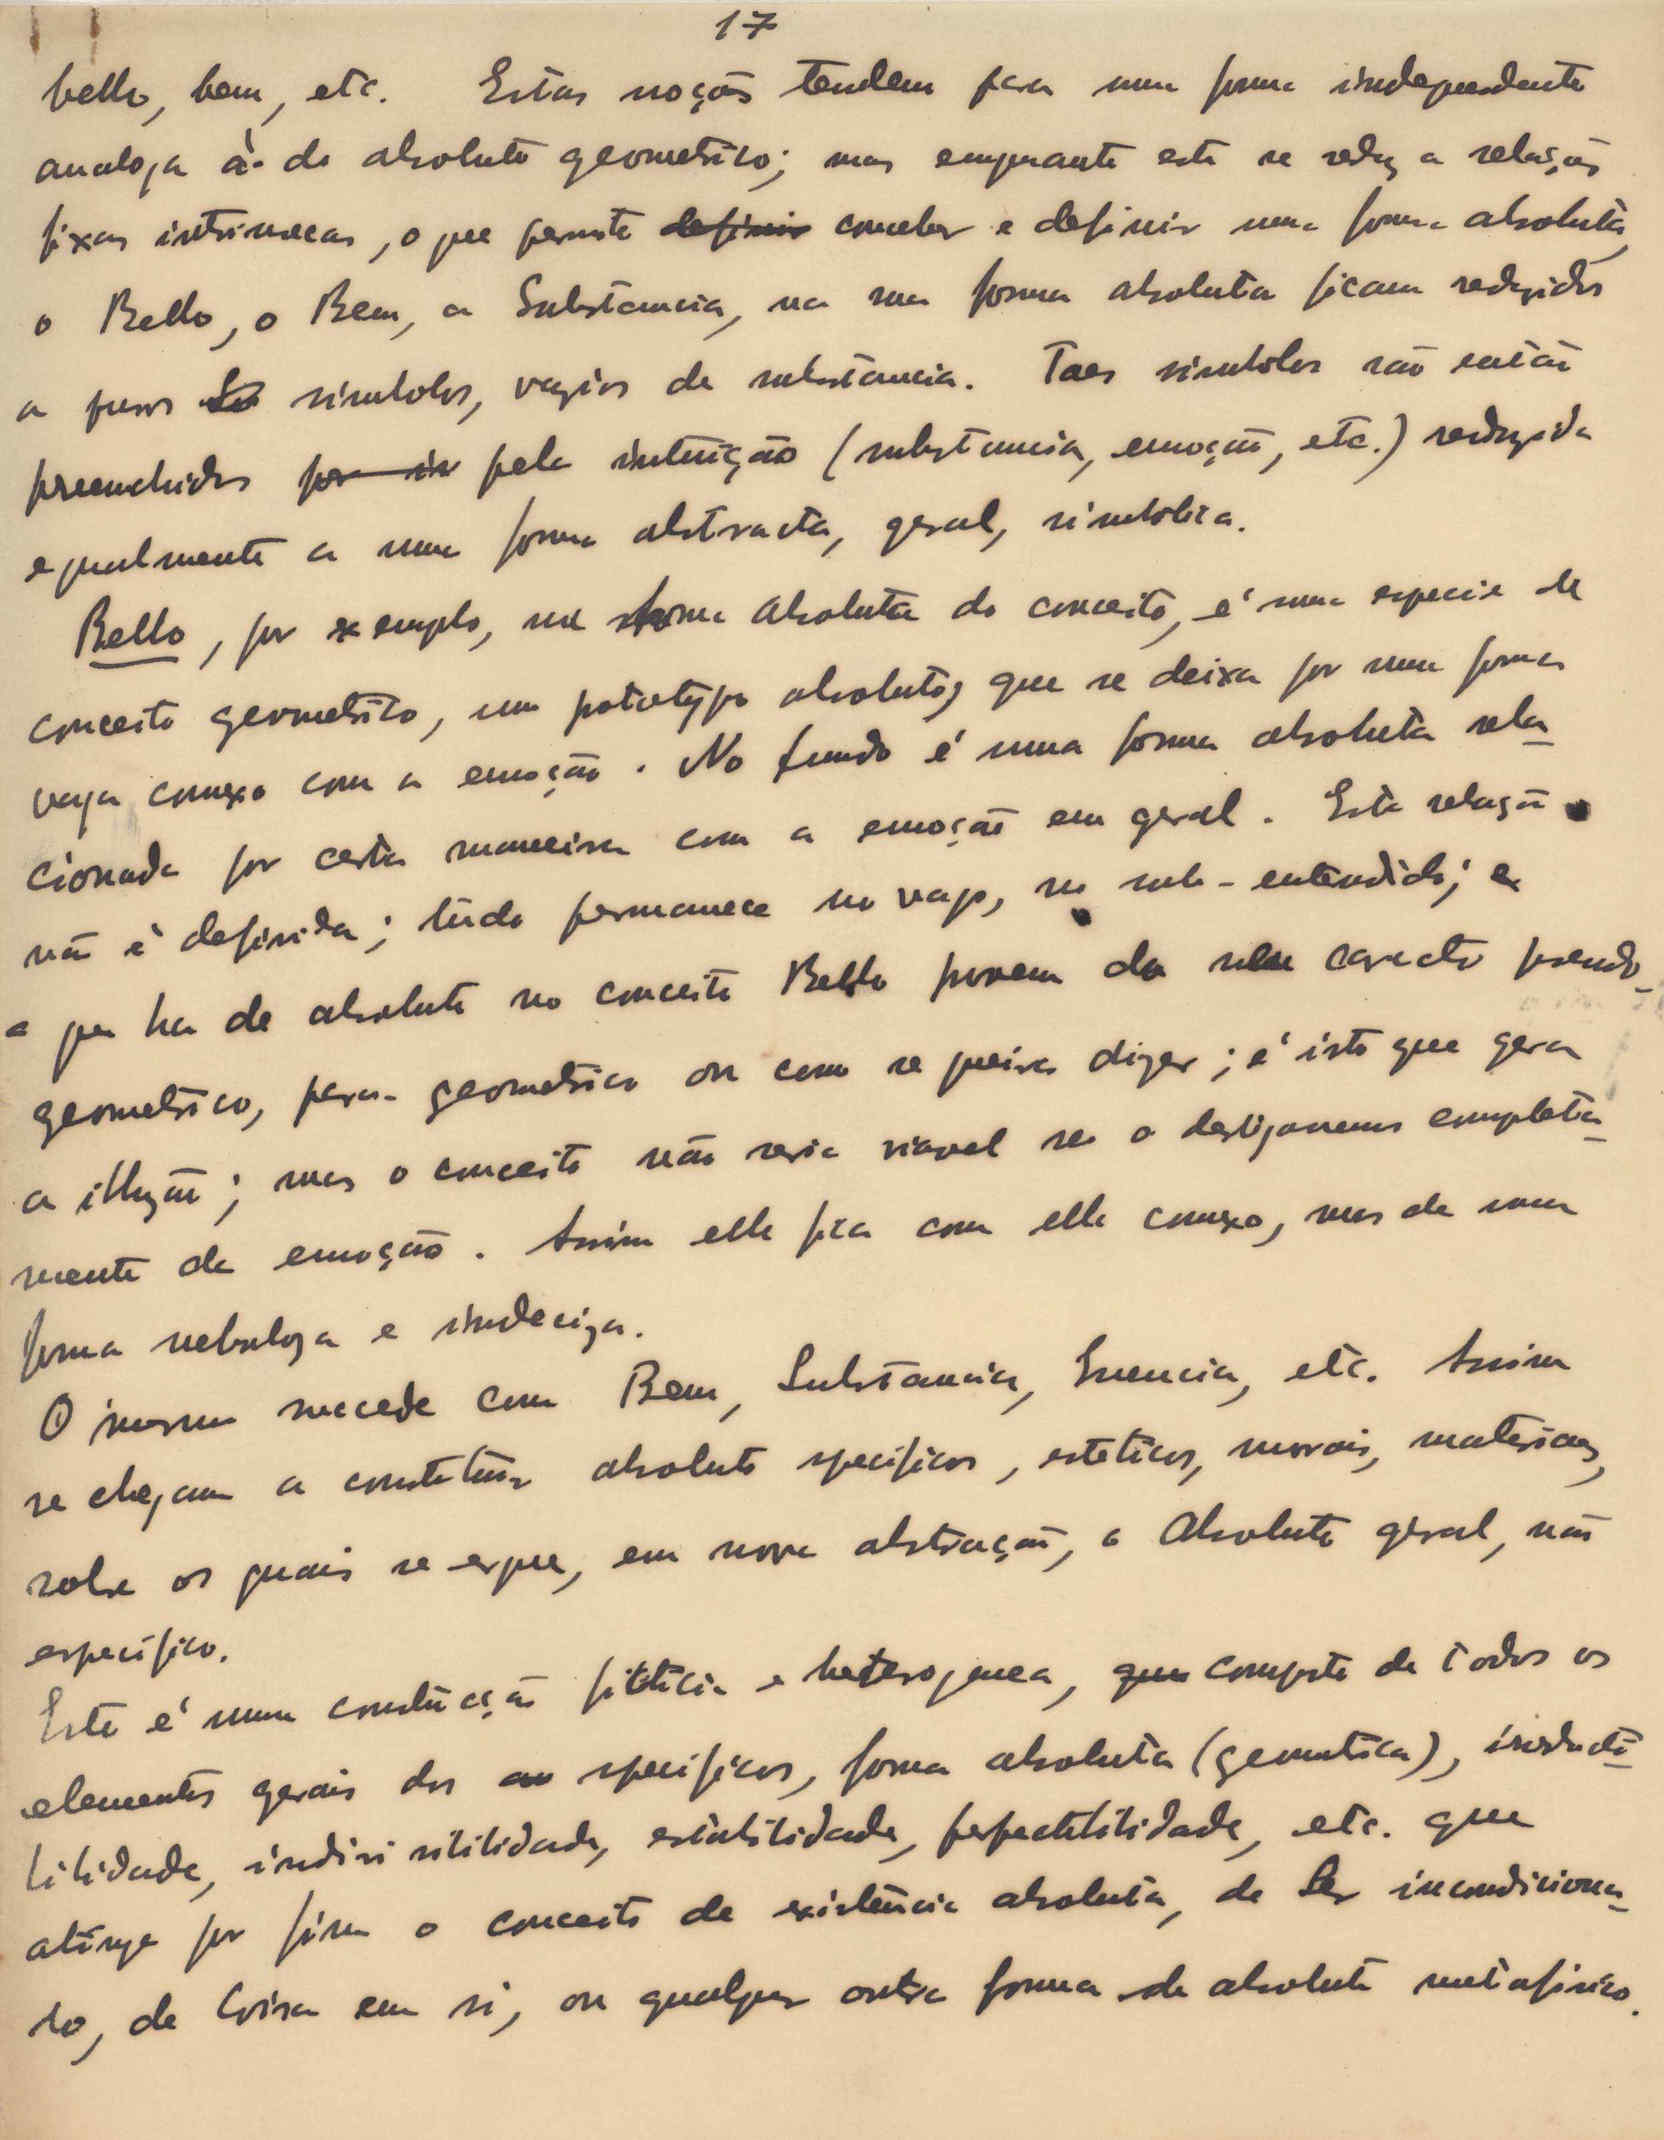 17
bello, bem, etc. Estas noções tendem para uma forma independente
analoga à do absoluto geometrico; mas emquanto este se reduz a relações
fixas intrinsecas, o que permite definir conceber e definir uma forma absoluta,
o Bello, o Bem, a Substancia, na sua forma absoluta ficam reduzidos
a puros simbolos, vazios de substancia. Taes simbolos são então
preenchidos por in pela intuição (substancia, emoção, etc.) reduzida
egualmente a uma forma abstracta, geral, simbolica.
Bello, por exemplo, na forma absoluta do conceito, é uma especie de
conceito geometrico, um prototypo absoluto, que se deixa por uma forma
vaga connexo com a emoção. No fundo é uma forma absoluta rela-
cionada por certa maneira com a emoção em geral. Esta relação
não é definida; tudo permanece no vago, no sub-entendido; e
o que ha de absoluto no conceito Bello provem do seu caracter pseudo-
geometrico, para-geometrico ou como se queira dizer; é isto que gera
a illuzão; mas o conceito não seria viavel se o desligassemos completa-
mente da emoção. Assim elle fica com ella connexo, mas de uma
forma nebuloza e indeciza.
O mesmo succede com Bem, Substancia, Essencia, etc. Assim
se chegam a constituir absolutos specificos, esteticos, morais, materiaes,
sobre os quais se ergue, em nova abstracção, o Absoluto geral, não
especifico.
Este é uma construcção ficticia e heterogenea, que composta de todos os
elementos gerais dos specificos, forma absoluta (geometrica), irreducti-
bilidade, indivisibilidade, estabilidade, perfectibilidade, etc. que
atinge por fim o conceito de existência absoluta, de Ser incondiciona-
do, de Coisa em si, ou qualquer outra forma de absoluto metafisico.